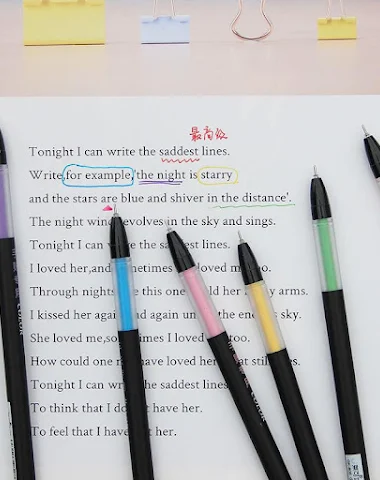 最高级
Tonight I can write the saddest lines.
Write,for example,'the night is starry
and the stars are blue and shiver in the distance'.
The night in the sky and sings.
Tonight I the lines.
I loved her,and loved me
Through nights this one her arms.
I kissed her again the sky.
She loved me, I loved too.
How could one have loved
Tonight I write the saddest lines
To think that I have her.
To feel that I have her.